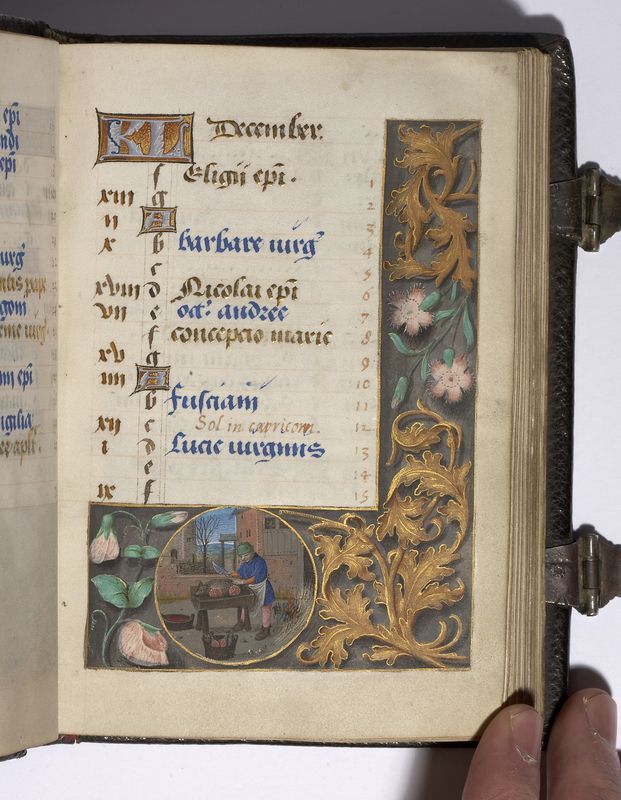 KL December.
f Eligii epi. 1
xiii g 2
ii A 3
x b barbare virg 4
c 5
xviii d Nicolai epi 6
vii e oct andree 7
f concepcio marie 8
xv g 9
iiii A 10
b fusciani 11
xii c Sol in capricorn. 12
i d Lucie virginis 13
e 14
ix f 15
epi
epi
virg
epi
vigilia
apli
12